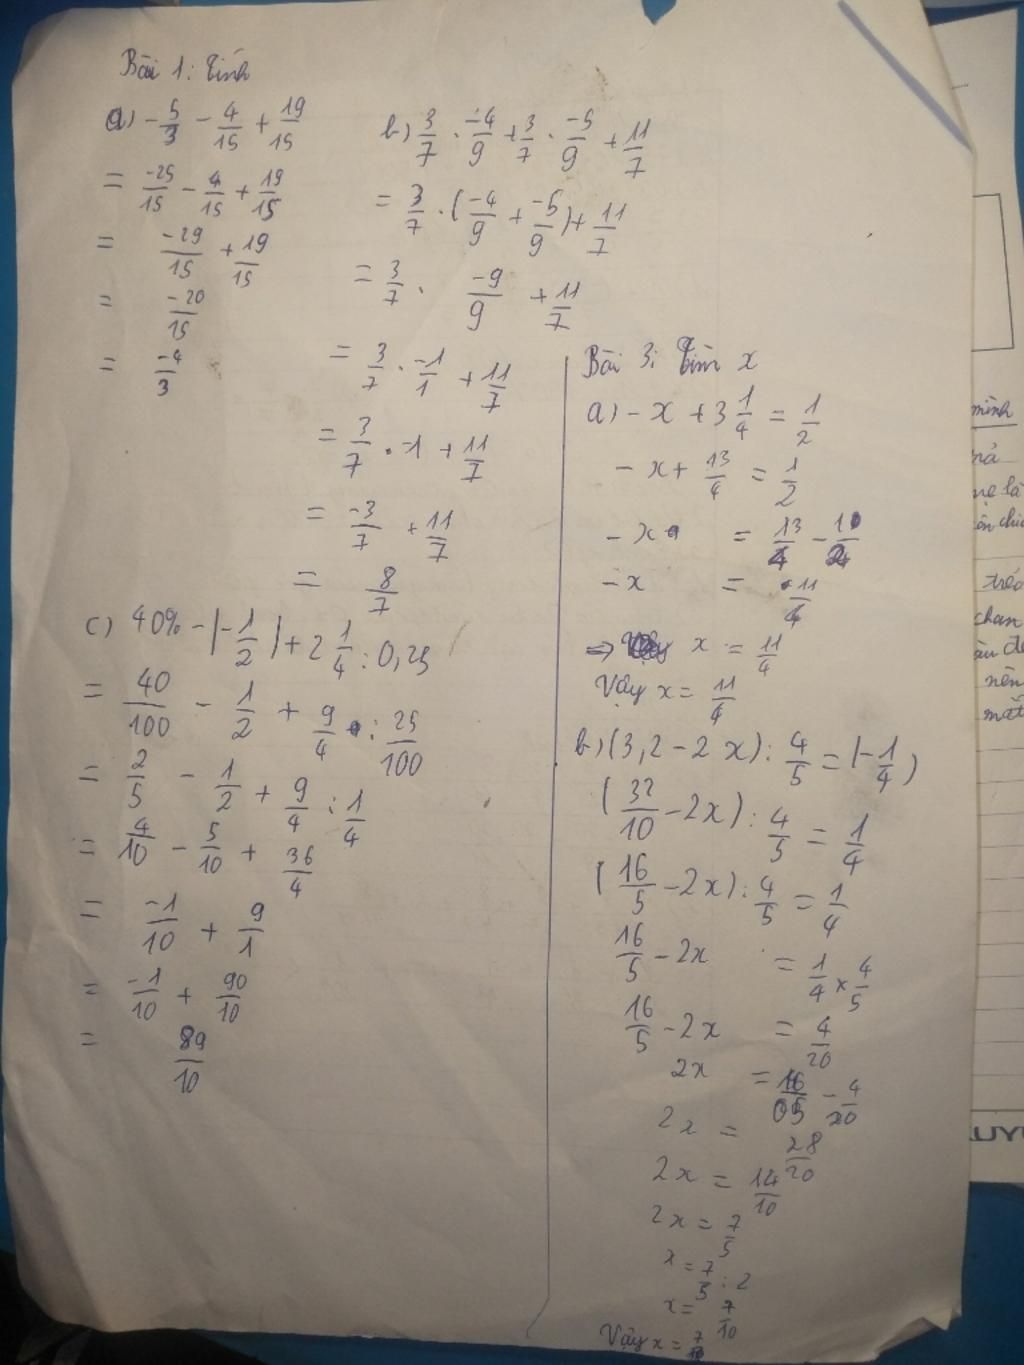 Bài 1: Tính
a) -5/3 - 4/15 + 19/15
= -25/15 - 4/15 + 19/15
= -29/15 + 19/15
= -20/15
= -4/3
b) 3/7 . -4/9 + 3/7 . -5/9 + 11/7
= 3/7 . (-4/9 + -5/9) + 11/7
= 3/7 . -9/9 + 11/7
= 3/7 . -1/1 + 11/7
= 3/7 . -1 + 11/7
= -3/7 + 11/7
= 8/7
c) 40% - |-1/2| + 2 1/4 : 0,25
= 40/100 - 1/2 + 9/4 : 25/100
= 2/5 - 1/2 + 9/4 : 1/4
= 4/10 - 5/10 + 36/4
= -1/10 + 9/1
= -1/10 + 90/10
= 89/10
Bài 3: Tìm x
a) - x + 3 1/4 = 1/2
- x + 13/4 = 1/2
- x = 13/4 -
- x = 11/4
=> x = 11/4
Vậy x = 11/4
b) (3,2 - 2x) : 4/5 = |-1/4|
(32/10 - 2x) : 4/5 = 1/4
(16/5 - 2x) : 4/5 = 1/4
16/5 - 2x = 1/4 x 4/5
16/5 - 2x = 4/20
2x = 16/05 - 4/20
2x = 28/20
2x = 14/10
2x = 7/5
x = 7/5 : 2
x = 7/10
Vậy x = 7/10
mình
nên
mắt